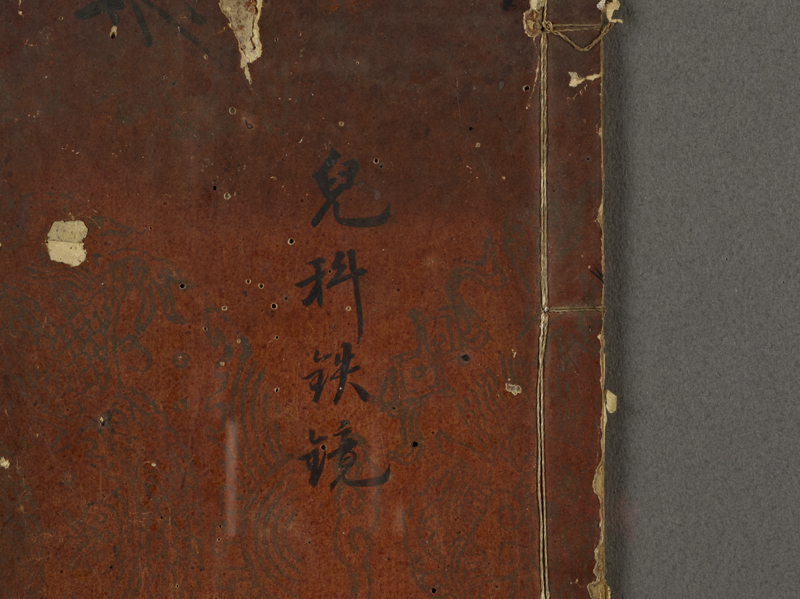 兒科鉄鏡